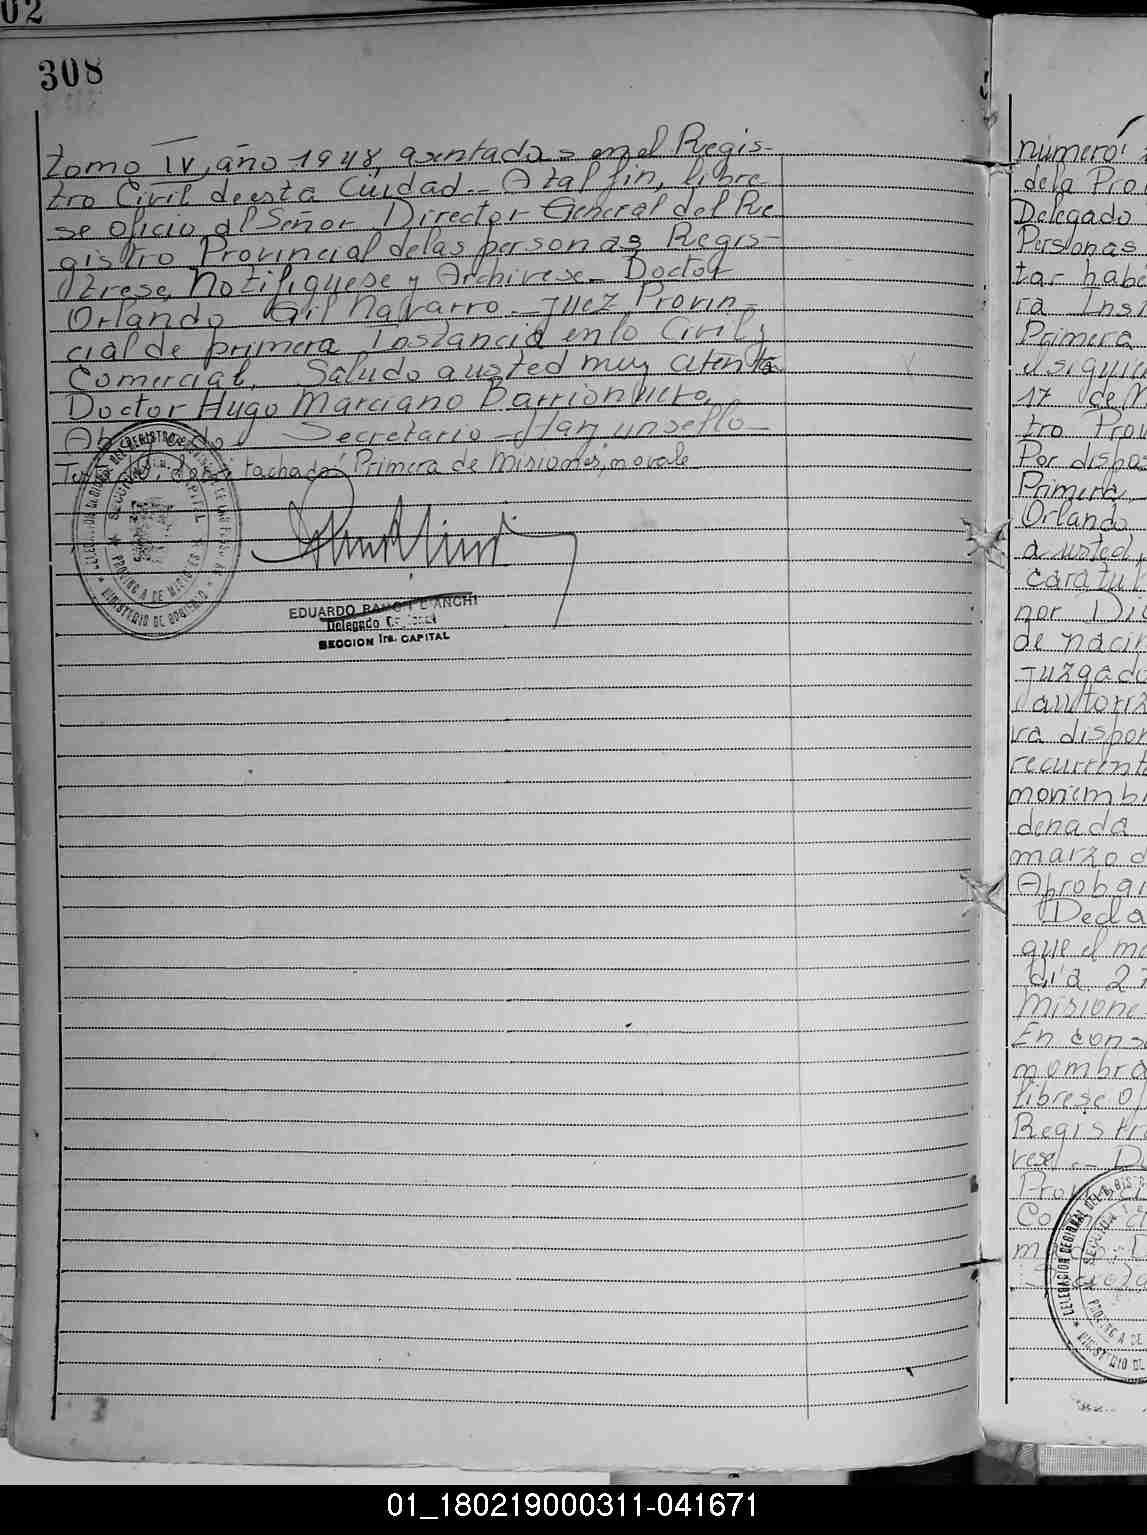 02
308
tomo IV, año 1948, asentados en el Regis-
tro Civil de esta Cuidad._ A tal fin, libre
se oficio al Señor Director General del Re
gistro Provincial de las personas Regis-
trese, Notifiquese y Archivese._ Doctor
Orlando Gil Navarro._ Juez Provin-
cial de primera Instancia en lo Civil y
Comercial. Saludo a usted muy atenta
Doctor Hugo Marciano Barrionuevo
Secretario._ Hay un sello._
tachado: Primera de Misiones; no vale
EDUARDO
Delegado
SECCION 1ra. CAPITAL
PROVINCIA DE MISIONES
MINISTERIO DE GOBIERNO
número
de la Pro
Delegado
Personas
tar habi
ra Ins
Primera
17 de
tro Prov
Por dispo
Primera
Orlando
a usted,
caratu
ñor Di
de nacim
Juzgado
autoriz
ra dispon
recurrent
noviemb
denada
marzo d
Aprobar
Decla
que el
dia 2
Misione
En cons
nombra
librese of
Registr
rese
Pro
Co
01_180219000311-041671